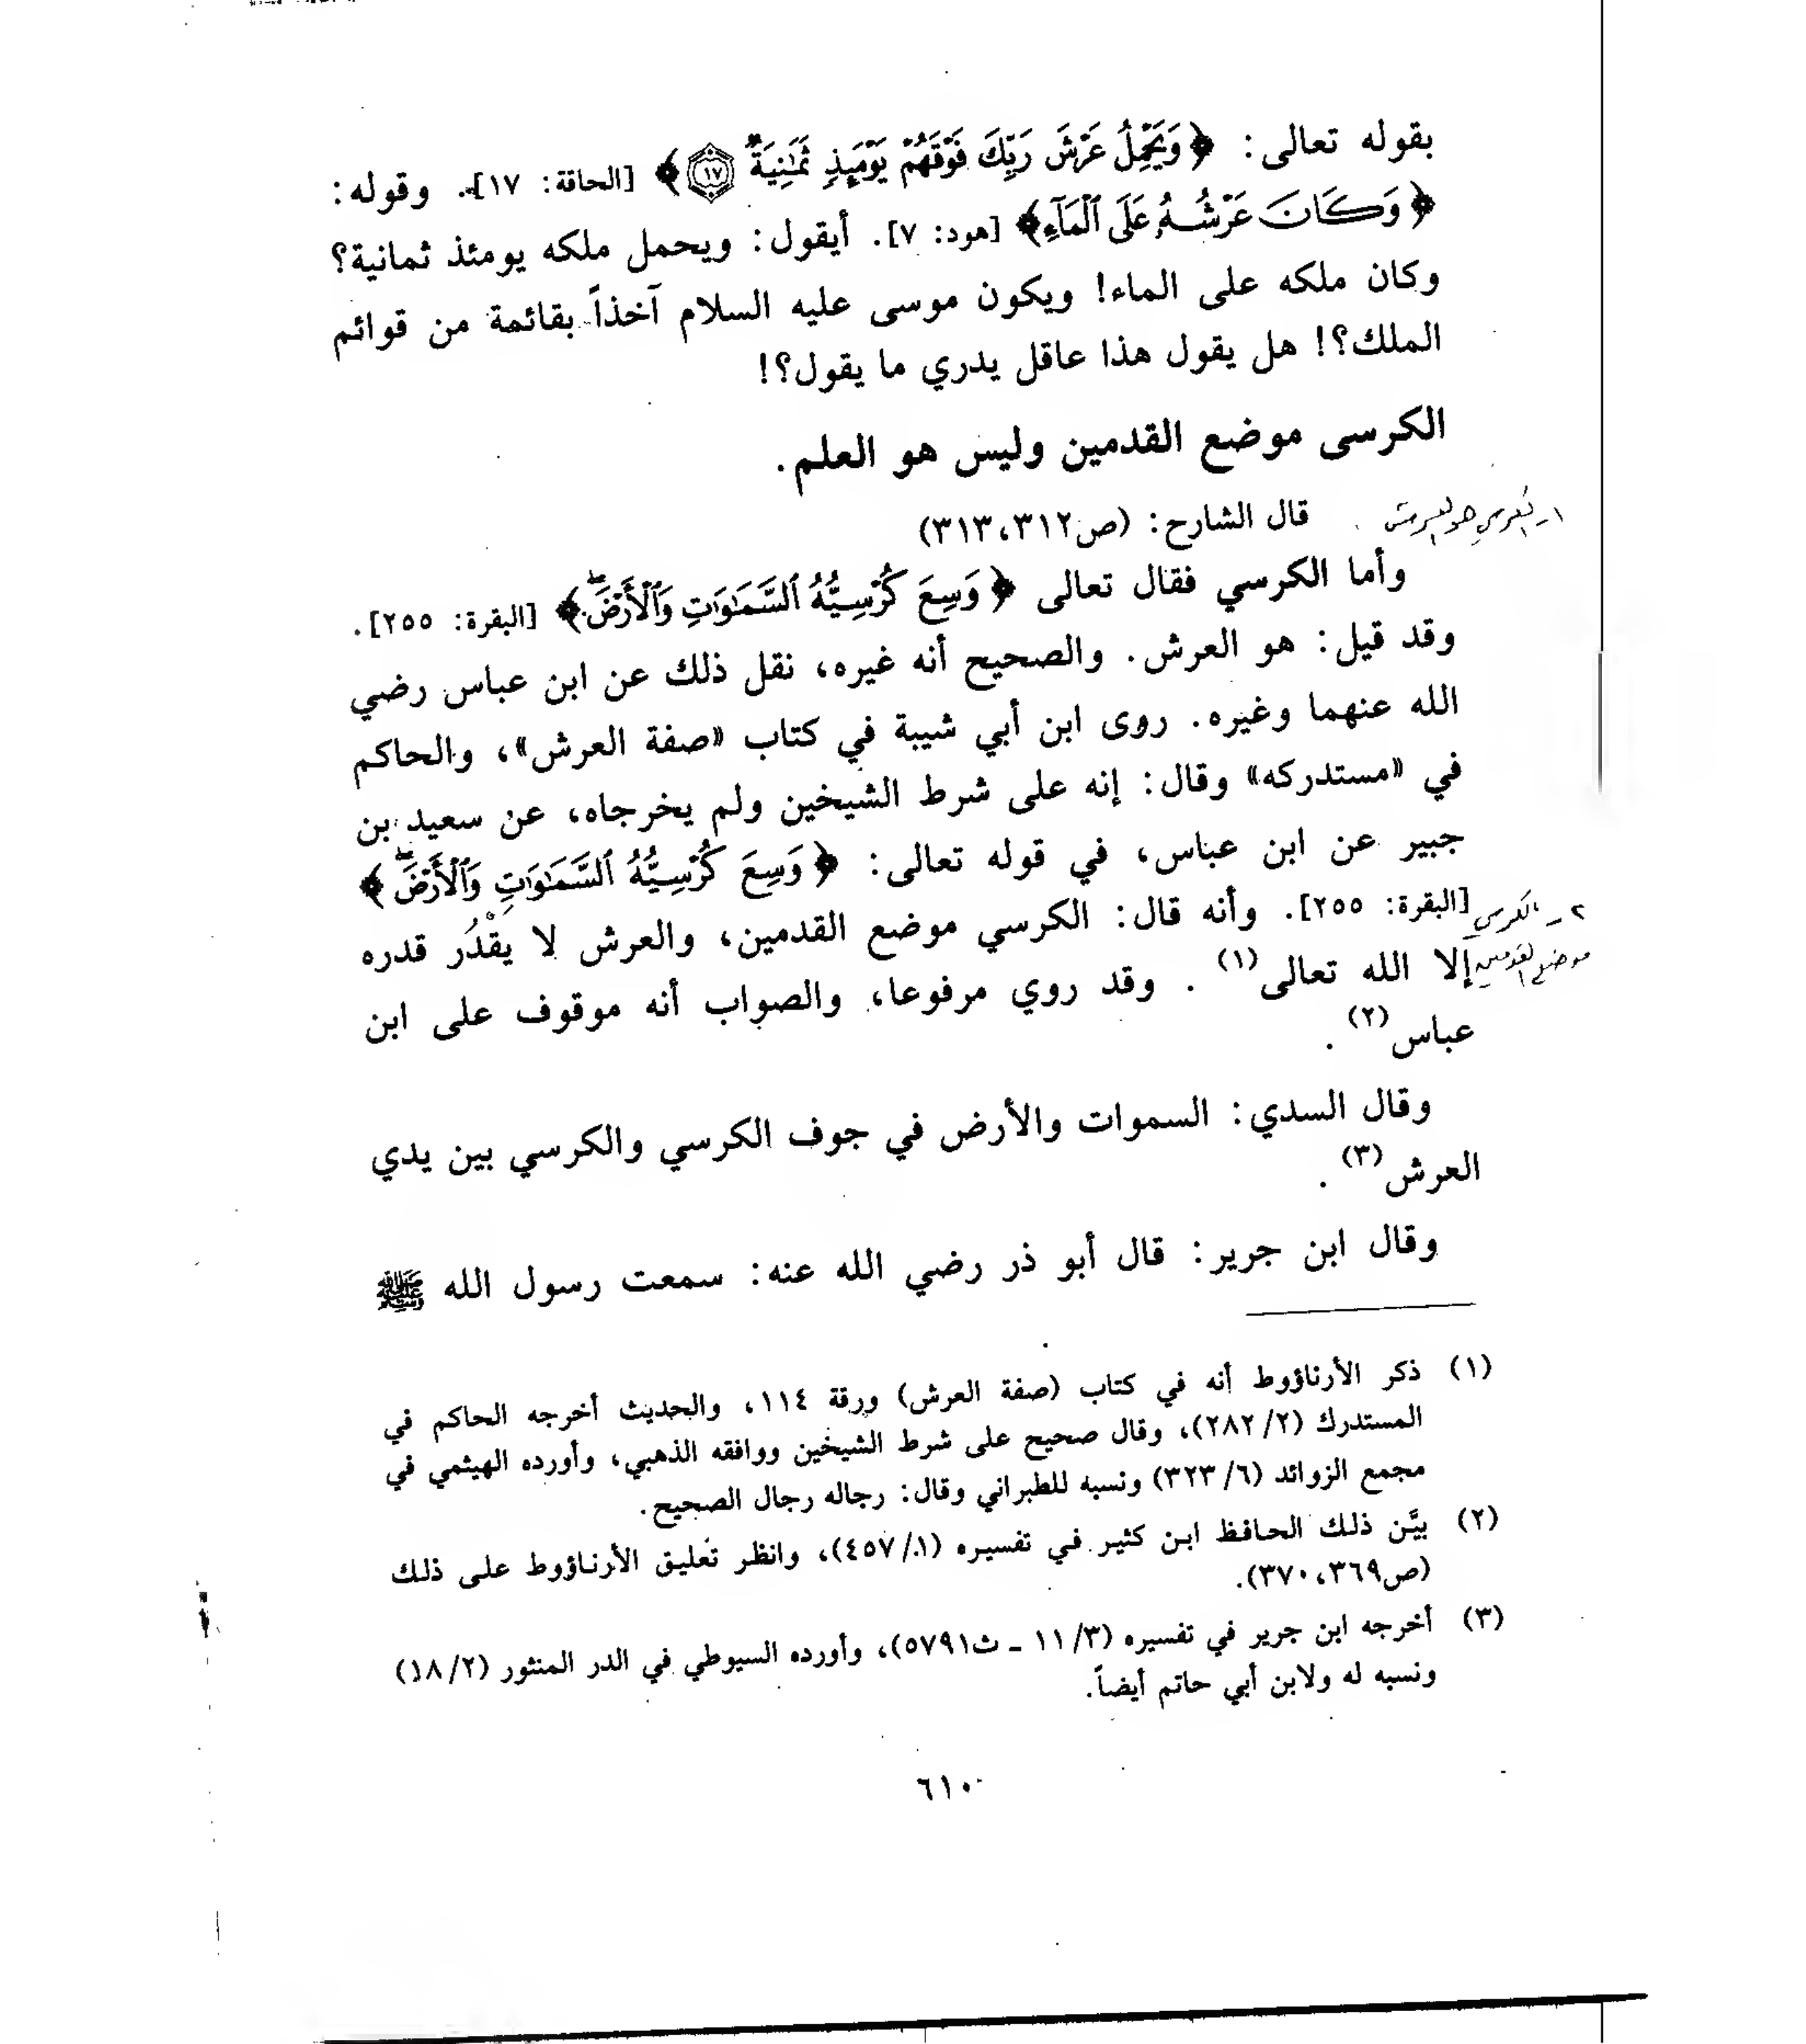 بقوله تعالى: ﴿وَيَحْمِلُ عَرْشَ رَبِّكَ فَوْقَهُمْ يَوْمَئِذٍ ثَمَٰنِيَةٌ ١٧﴾ [الحاقة: ١٧]. وقوله:
﴿وَكَانَ عَرْشُهُۥ عَلَى ٱلْمَآءِ﴾ [هود: ٧]. أيقول: ويحمل ملكه يومئذ ثمانية؟
وكان ملكه على الماء! ويكون موسى عليه السلام آخذاً بقائمة من قوائم
الملك؟! هل يقول هذا عاقل يدري ما يقول؟!
الكرسى موضع القدمين وليس هو العلم.
١- الكرسي هو العرش
قال الشارح: (ص٣١٢،٣١٣)
وأما الكرسي فقال تعالى ﴿وَسِعَ كُرْسِيُّهُ ٱلسَّمَٰوَٰتِ وَٱلْأَرْضَۖ﴾ [البقرة: ٢٥٥].
وقد قيل: هو العرش. والصحيح أنه غيره، نقل ذلك عن ابن عباس رضي
الله عنهما وغيره. روى ابن أبي شيبة في كتاب «صفة العرش»، والحاكم
في «مستدركه» وقال: إنه على شرط الشيخين ولم يخرجاه، عن سعيد بن
جبير عن ابن عباس، في قوله تعالى: ﴿وَسِعَ كُرْسِيُّهُ ٱلسَّمَٰوَٰتِ وَٱلْأَرْضَۖ﴾
[البقرة: ٢٥٥]. وأنه قال: الكرسي موضع القدمين، والعرش لا يقْدُر قدره
٢- الكرسي
موضع القدمين
إلا الله تعالى(١). وقد روي مرفوعا، والصواب أنه موقوف على ابن
عباس(٢).
وقال السدي: السموات والأرض في جوف الكرسي والكرسي بين يدي
العرش(٣).
وقال ابن جرير: قال أبو ذر رضي الله عنه: سمعت رسول الله ﷺ
(١) ذكر الأرناؤوط أنه في كتاب (صفة العرش) ورقة ١١٤، والحديث أخرجه الحاكم في
المستدرك (٢/٢٨٢)، وقال صحيح على شرط الشيخين ووافقه الذهبي، وأورده الهيثمي في
مجمع الزوائد (٦/٣٢٣) ونسبه للطبراني وقال: رجاله رجال الصحيح.
(٢) بيَّن ذلك الحافظ ابن كثير في تفسيره (١/٤٥٧)، وانظر تعليق الأرناؤوط على ذلك
(ص٣٦٩،٣٧٠).
(٣) أخرجه ابن جرير في تفسيره (٣/١١ - ث٥٧٩١)، وأورده السيوطي في الدر المنثور (٢/١٨)
ونسبه له ولابن أبي حاتم أيضاً.
٦١٠